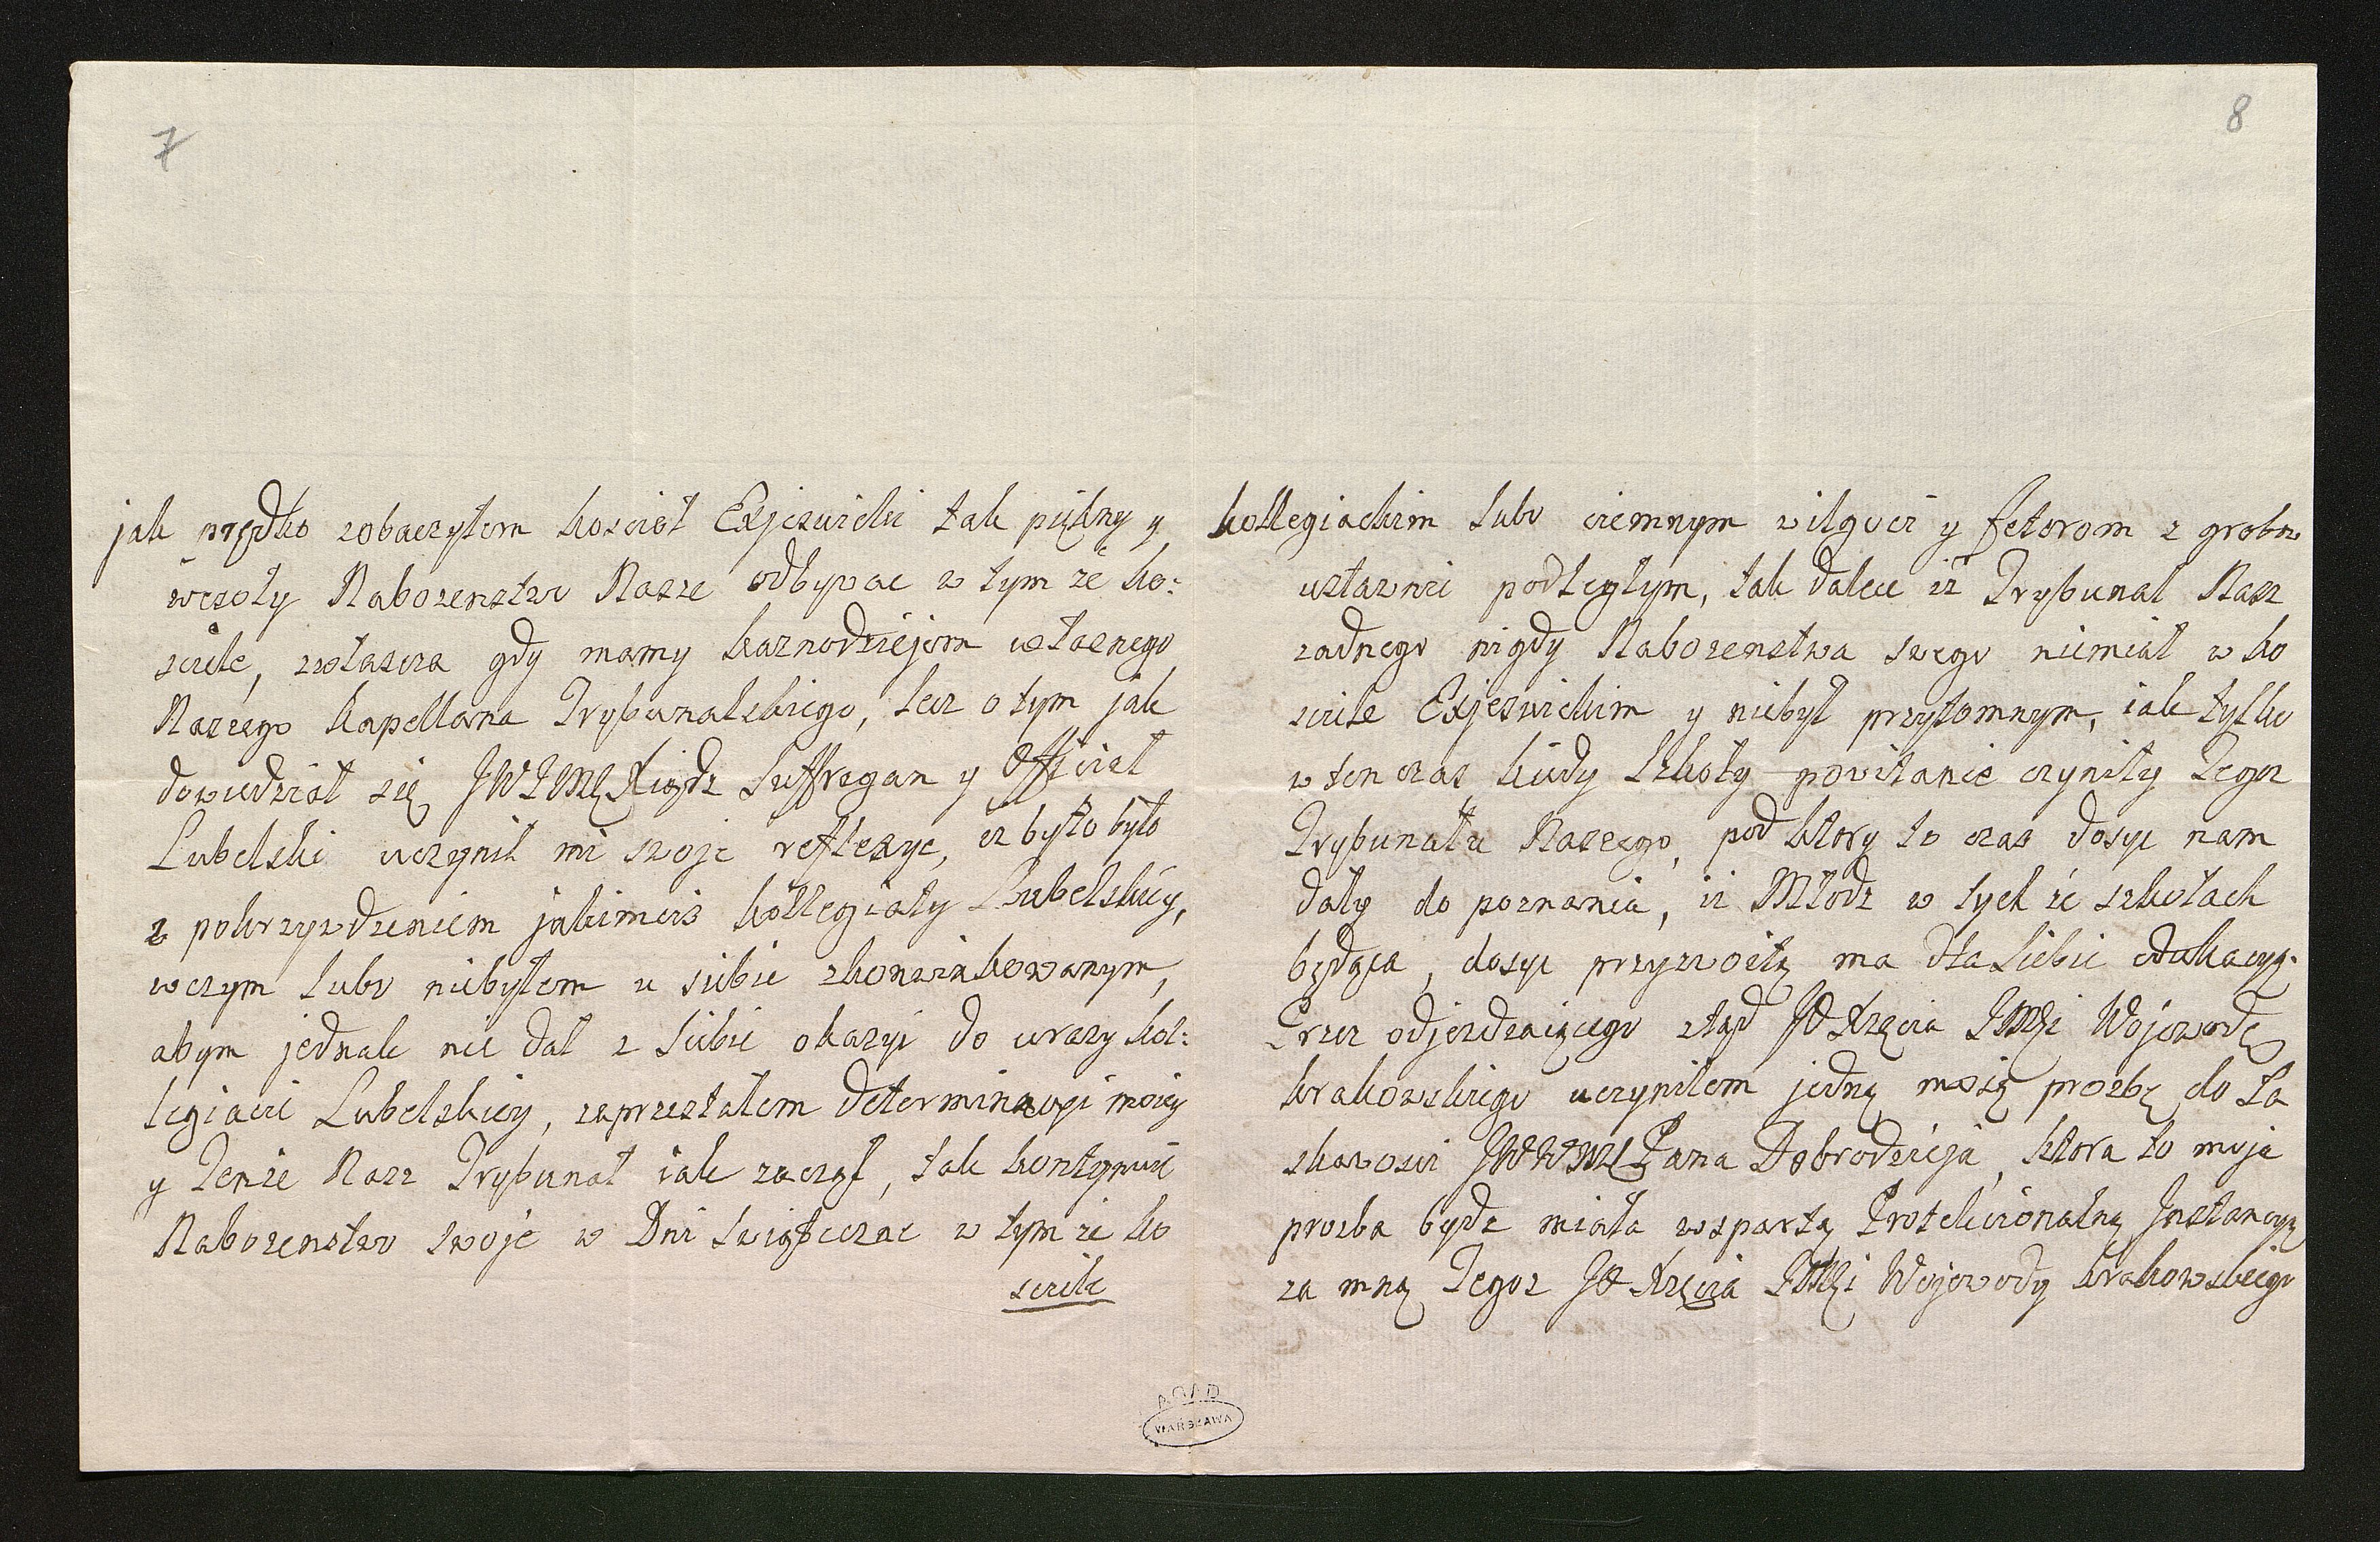 7
jak prędko zobaczyłem kosciół Exjezuicki tak piękny y
wesoły Nabozenstwo Nasze odbywac w tym ze ko:
sciele, zwłascza gdy mamy kaznodzieiom własnego
Naszego kapellana Trybunalskiego, lecz o tym jak
dowiedział się JWJMĘ Xiądz Suffragan y Officiał
Lubelski uczynił mi swoje reflexye, iz byłoby to
z pokrzywdzeniem jakimciś kollegiaty Lubelskiey,
w czym lubo niebyłem u siebie zkonwinkowanym,
abym jednak nie dał z siebie okazyi do urazy kol:
legiacie Lubelskiey, zaprzestałem determinacyi moiey
y Tenże Nasz Trybunał iak zaczął, tak kontynuie
Nabozenstwo swoje w Dni Swiąteczne w tym ze ko
sciele
8
kollegiackim lubo ciemnym wilgoci y fetorom z grobow
ustawnie podległym, tak dalece iż Trybunał Nasz
zadnego nigdy Nabozenstwa swego niemiał w ko
sciele Exjezuickim y niebył przytomnym, iak tylko
w ten czas kiedy Szkoły powitanie czyniły Tegoz
Trybunału Naszego, pod ktory to czas dosyc nam
dały do poznania, iż Młodz w tych że szkołach
będąca, dosyc przyzwoitą ma dla siebie edukacyą.
Przez odjezdzaiącego ztąd JO Xzęcia JMĘi Wojewodę
krakowskiego uczyniłem jedną moię prozbę do Ła
skawosci JWWMĘ Pana Dobrodzieja, ktora to moja
prozba bydz miała wspartą Protekcionalną Instancyą
za mną Tegoz JO Xzęcia JMĘi Wojewody krakowskiego
AGAD
WARSZAWA